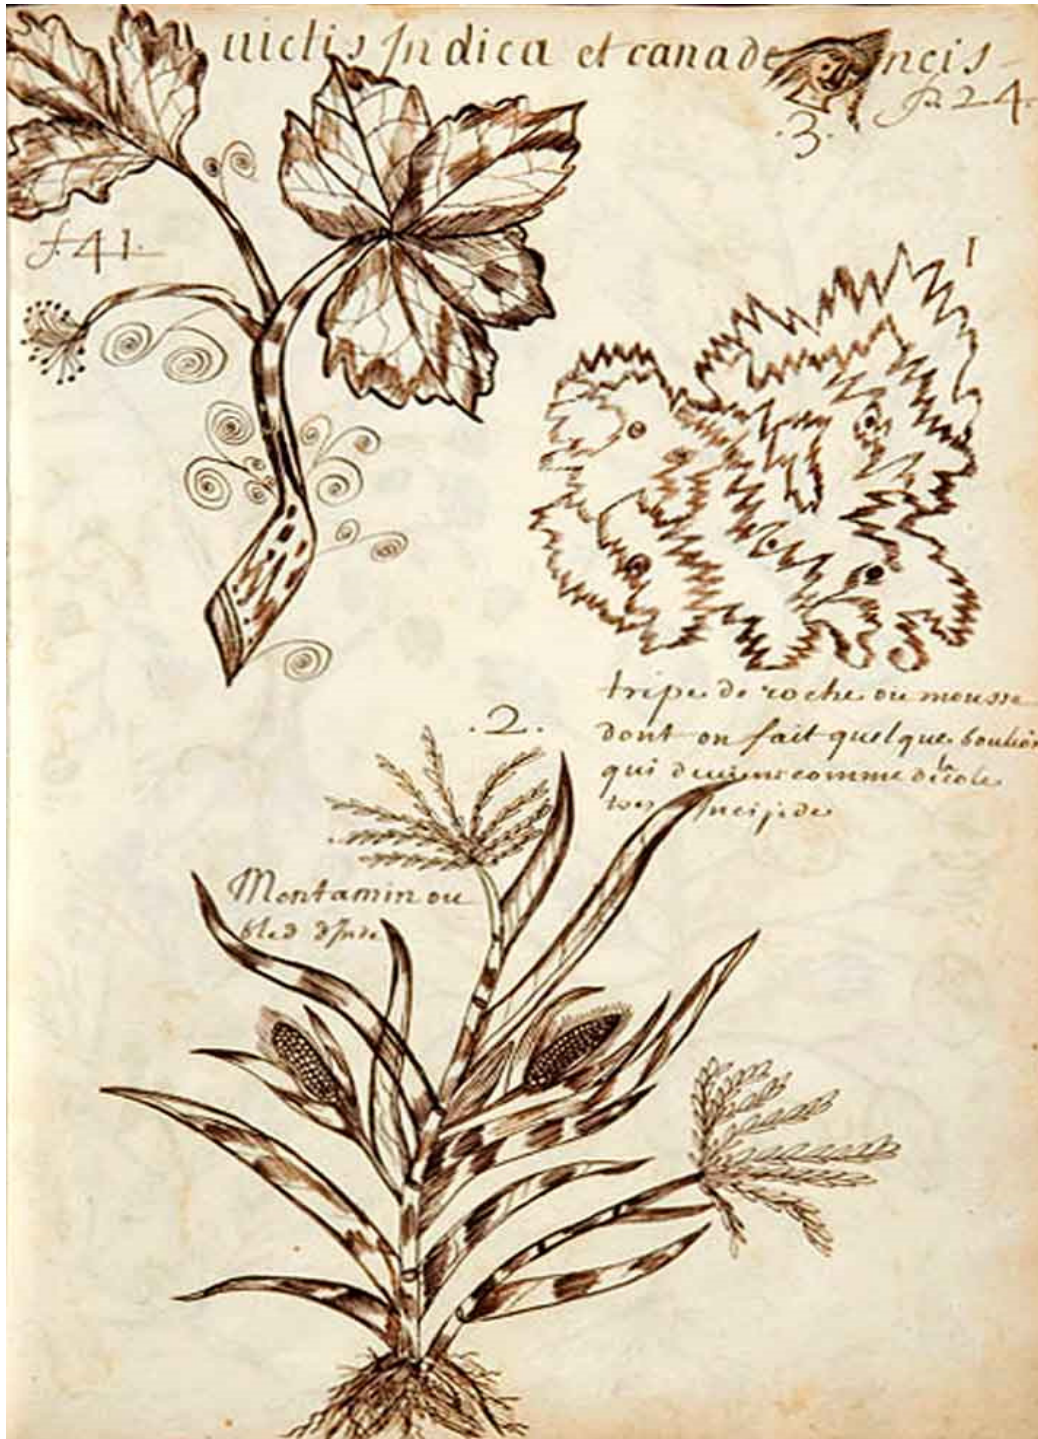 uictis Indica et canadencis
fo 24.
.3.
f. 41.
1
tripe de roche ou mousse
dont on fait quelque bouilion
qui deuient comme de la cole
tres Incipide
.2.
Montamin ou
bled d'Inde